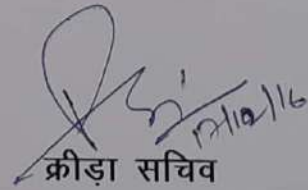 17/12/16
क्रीड़ा सचिव